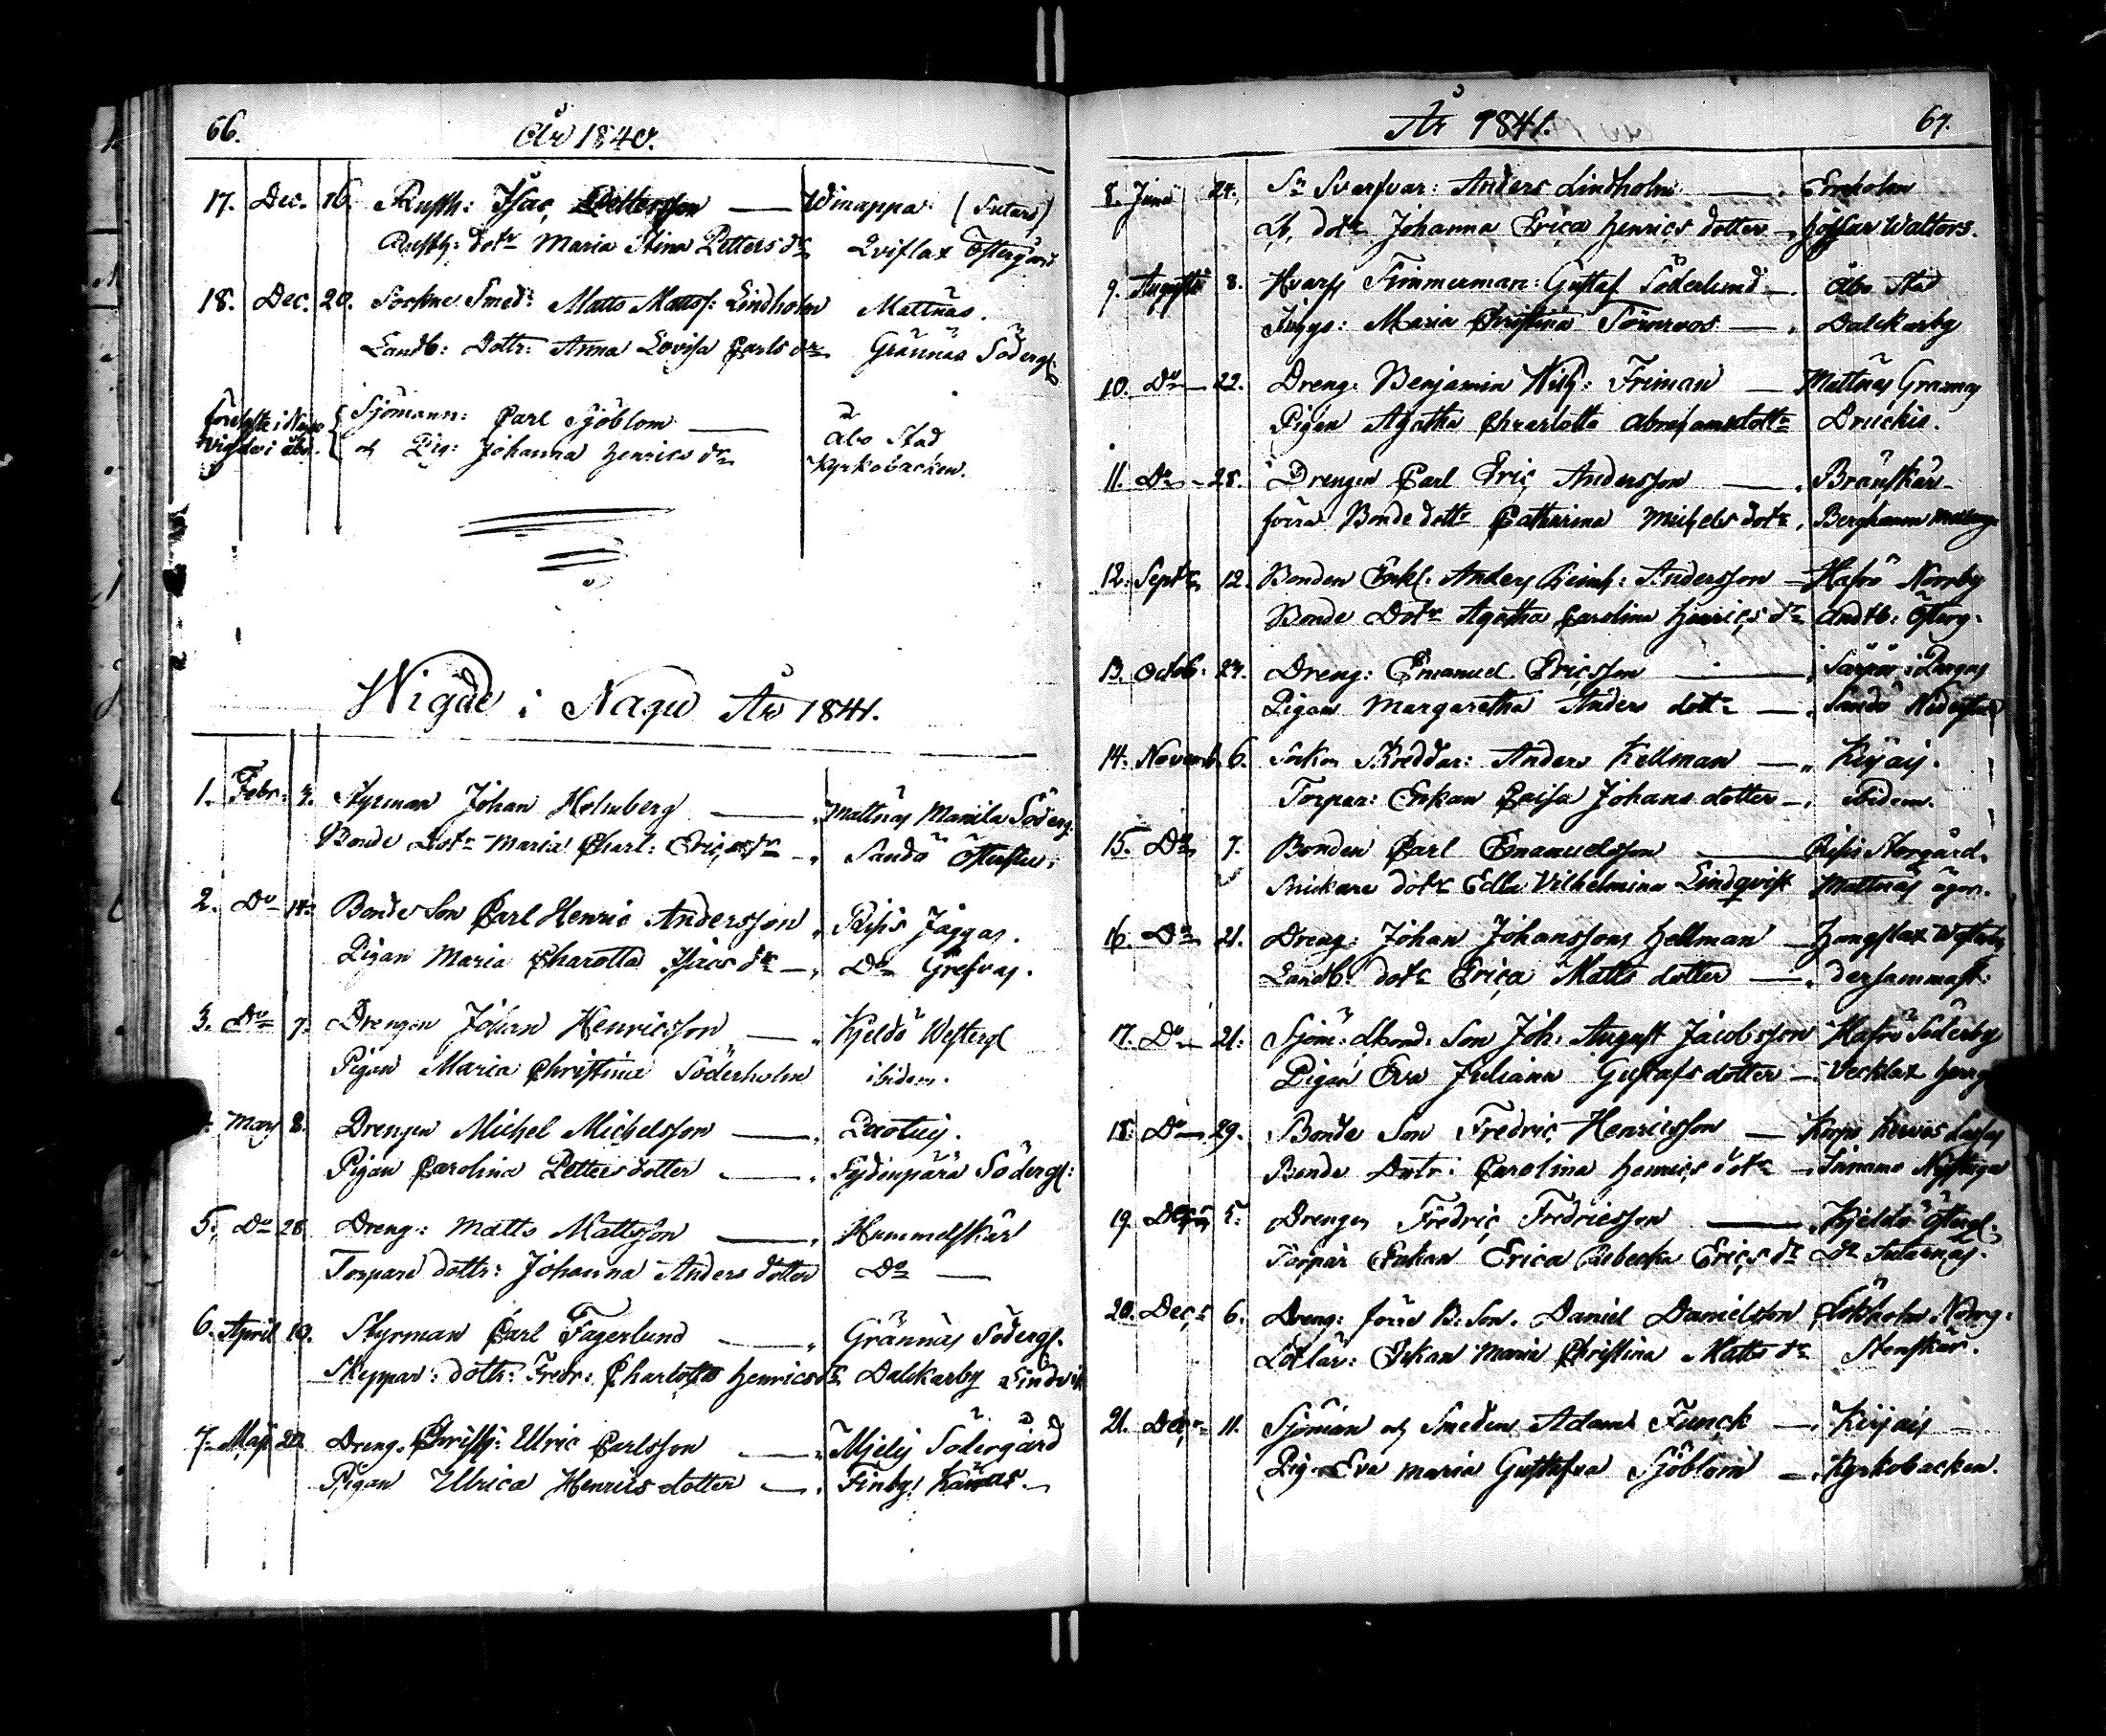 66.
År 1840.
17. Dec. 16. Rusth: Isac Pettersson — Winappa (Sutars)
Rusth: dotr Maria Stina Petters dr Qviflax Östergård
18. Dec. 20. Sockne Smed: Matts Mattss: Lindholm Mattnäs.
Landb: Dottr: Anna Lovisa Carls dr Grännäs Södergl
Sjömann: Carl Sjöblom — Åbo Stad
Wigde i Åbo. och Pig: Johanna Henrics dr Kyrkobacken.
Wigde i Nagu År 1841.
1. Febr. Styrman Johan Holmberg — Mattnäs Manila Söderg:
Bonde Dotr Maria Charl: Erics dr — Sandö
2. Do 14. Bonde Son Carl Henric Andersson Risis Jäggas.
Pigan Maria Charotta Isacs dr — Do Grefvas.
3. Do 7. Drengen Johan Henricsson — Kjeldö Westergl
Pigan Maria Christina Söderholm ibidem.
Mars 8. Drengen Michel Michelsson —
Pigan Carolina Petters dotter — Södergl:
5. Do 28 Dreng: Matts Mattsson — Hummelskär
Torpare dottr: Johanna Anders dotter Do —
6. April 10. Styrman Carl Fagerlund — Grännäs Södergl.
Skeppar: dottr: Fredr: Charlotta Henrics dr Dalkarby Lindvik
7. Maji 20 Dreng. Christ: Ulric Carlsson — Mjelis Södergård
Pigan Ulrica Henrics dotter — Finby Känäs.
År 1841.
67.
8. Junii 24. Sn Svarfvar: Anders Lindholm — Ernholm
Lb. dotr Johanna Erica Henrics dotter — Höfsar Waltors.
9. Augusti 8. Hvarfs Timmerman: Gustaf Söderlund — Åbo Stad
Maria Christina Törnroos — Dalkarby
10. Do 22. Dreng: Benjamin Wilh: Friman — Mattnäs Grannas
Pigan Agatha Charlotta Abrahamsdottr Druckis.
11. Do 28. Drengen Carl Eric Andersson — Brännskär
förra Bonde dottr Catharina Michels dotr, Berghamn
12. Septr 12. Bonden Enkl: Anders Reinh: Andersson — Hafrö Norrby
Bonde Dotr Agatha Carolina Henrics dr Österg:
13. Octob. 24. Dreng: Emanuel Ericsson — i Pargas
Pigan Margaretha Anders dottr — Sandö
14. Novemb. 6. Sockn Skräddar: Anders Kellman — Kirjais.
Torpar: Enkan Caisa Johans dotter — ibidem.
15. Do 7. Bonden Carl Emanuelsson — Risis Storgård.
Snickare dotr Edla Vilhelmina Lindqvist Mattnäs ägor.
16. Do 21. Dreng: Johan Johanssons Hellman —
Landb. dotr Erica Matts dotter — dersammast:
17. Do 21. Sjöm: Son Joh: August Jacobsson Hafrö Söderby
Pigan Eva Juliana Gustafs dotter — Vecklax
18. Do 29. Bonde Son Fredric Henricsson — Korpo
Bonde Dotr: Carolina Henrics dotr — Innamo Nystuga
19. Decr 5. Drengen Fredric Fredricsson — Kjeldö Östergl.
Torpar Enkan Erica Rebecka Erics dr Do Sutarnäs.
20. Decr 6. Dreng: förre B: Son. Daniel Danielsson Lökholm Nederg:
Enkan Maria Christina Matts dr Stenskär.
21. Decr 11. Sjöman och Smeden Adam Funck — Kirjais
Pig. Eva Maria Gustafva Sjöblom — Kyrkobacken.